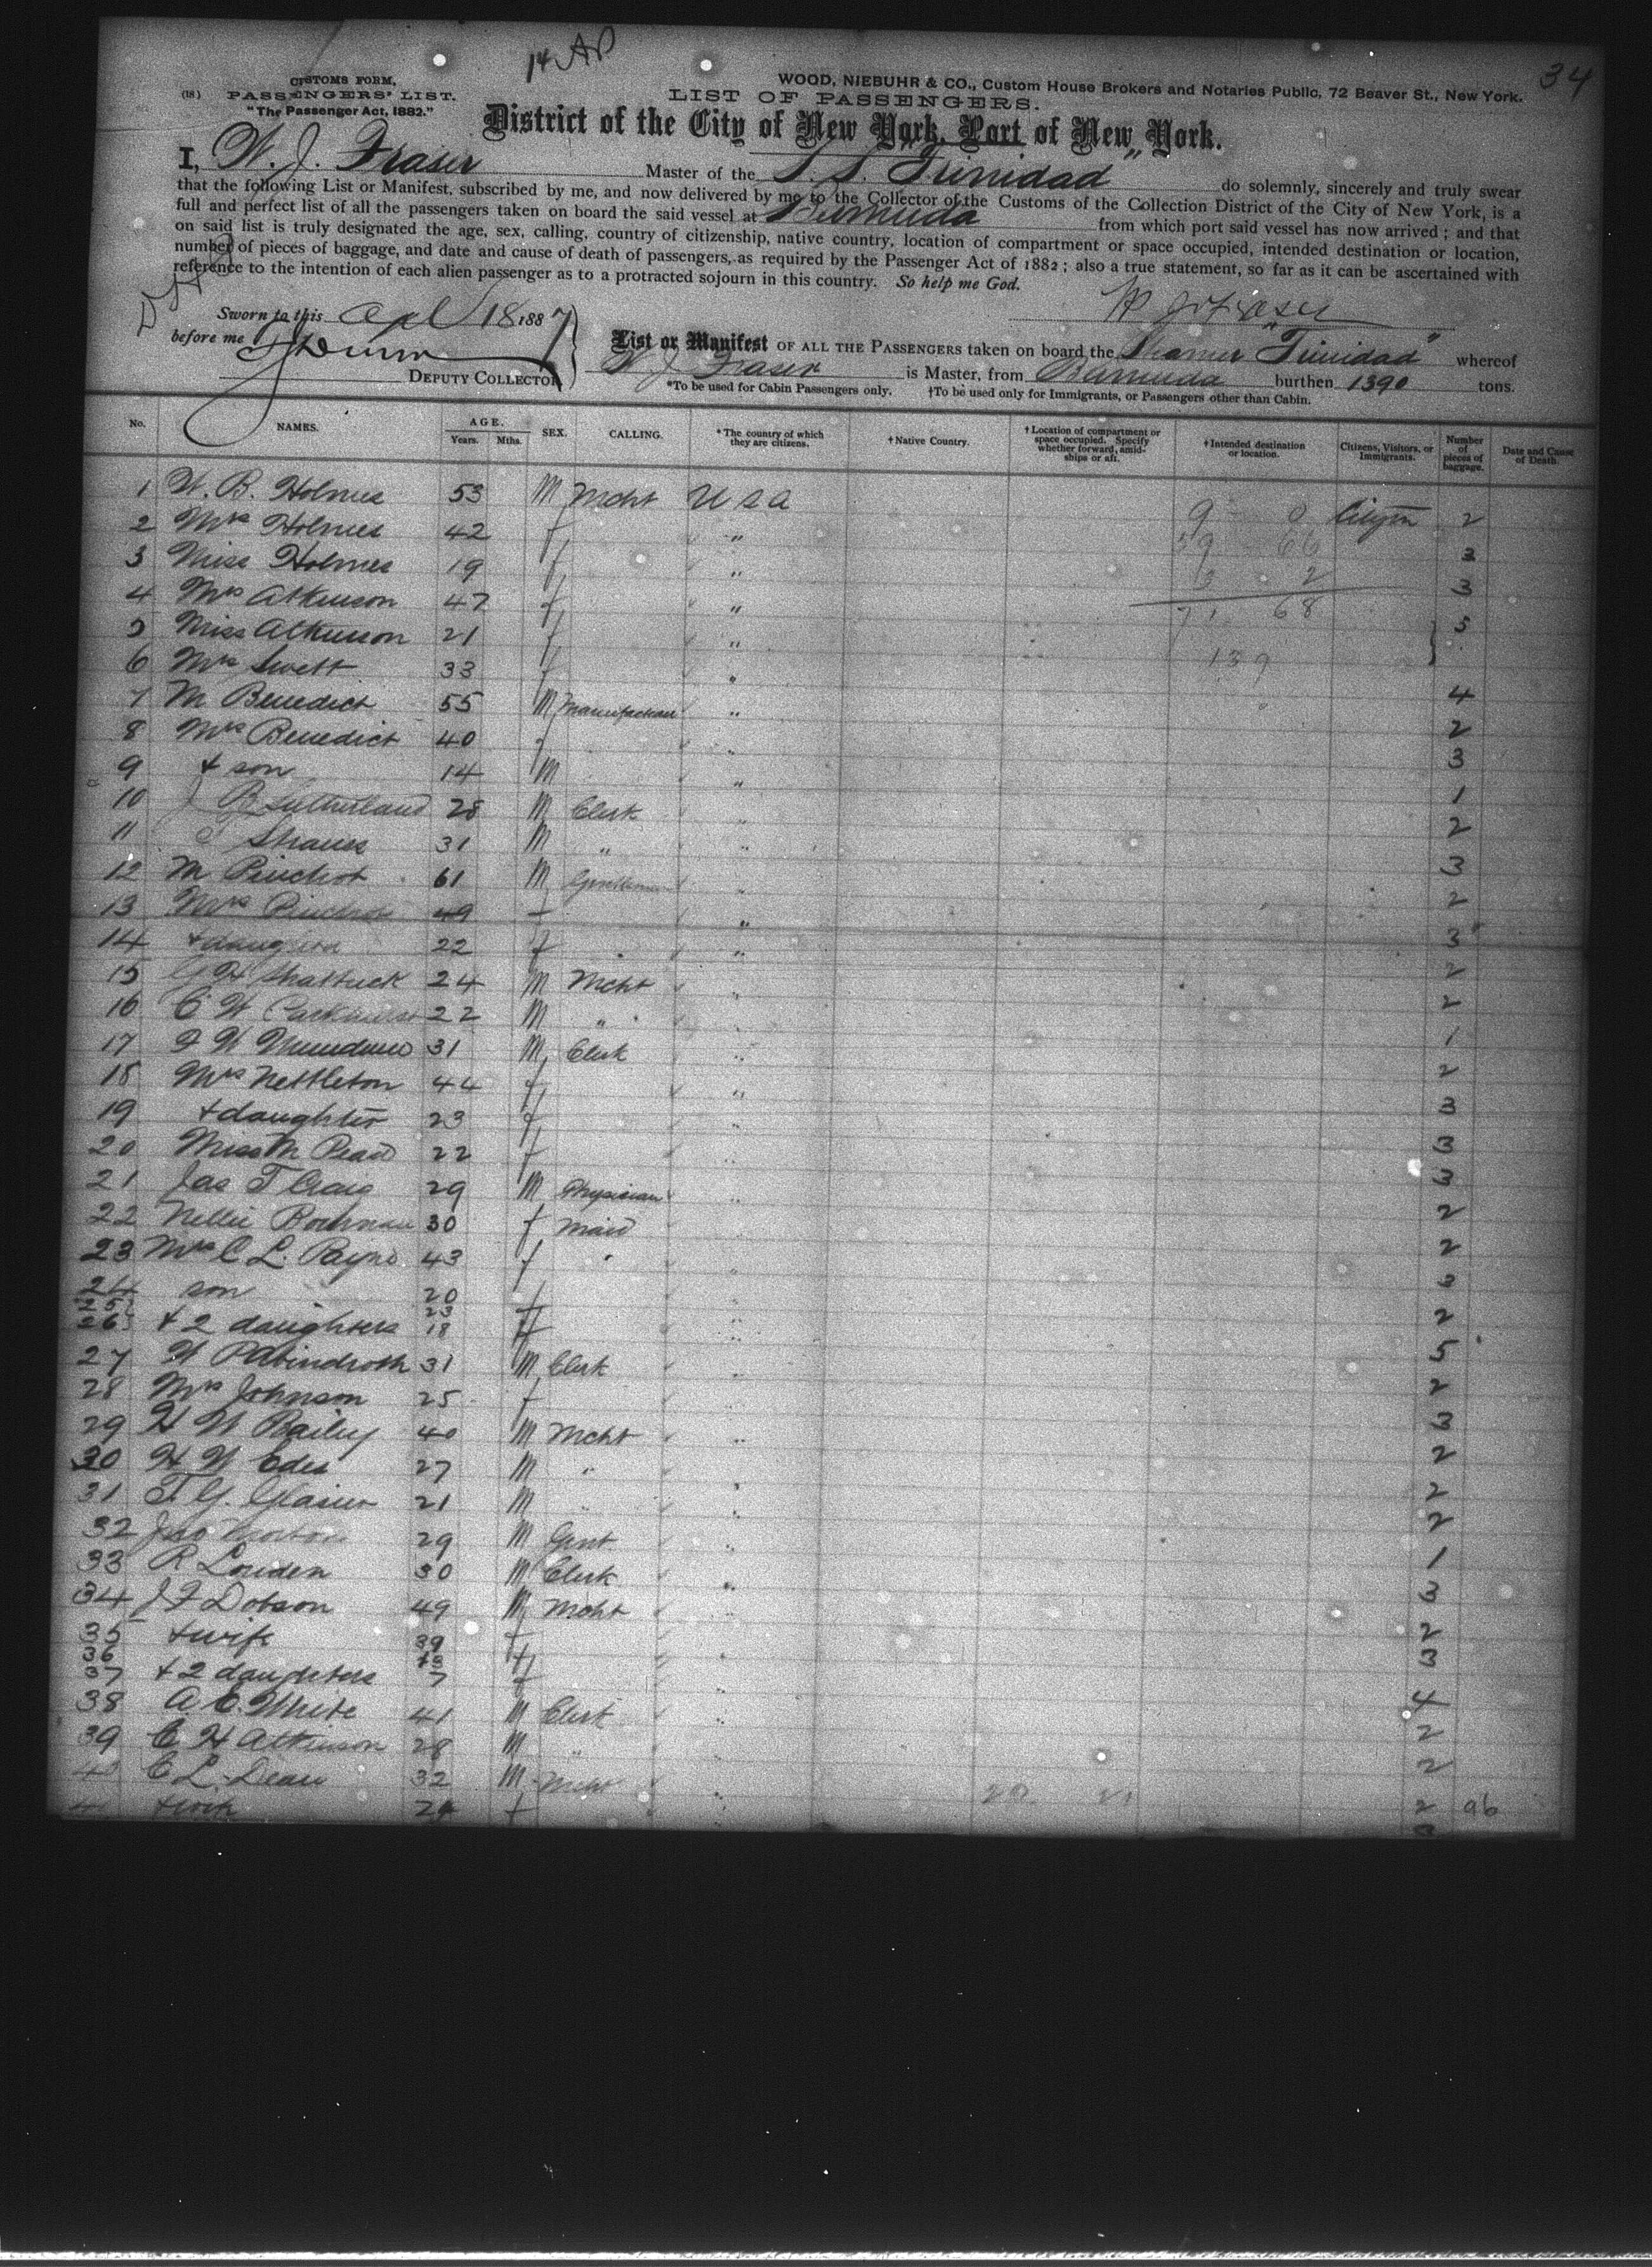 34
14 AP
CUSTOMS FORM,
(18) PASSENGERS' LIST.
"The Passenger Act, 1882."
WOOD, NIEBUHR & CO., Custom House Brokers and Notaries Public, 72 Beaver St., New York.
LIST OF PASSENGERS.
District of the City of New York, Port of New York.
I, W. J. Fraser Master of the S. S. "Trinidad" do solemnly, sincerely and truly swear
that the following List or Manifest, subscribed by me, and now delivered by me to the Collector of the Customs of the Collection District of the City of New York, is a
full and perfect list of all the passengers taken on board the said vessel at Bermuda from which port said vessel has now arrived; and that
on said list is truly designated the age, sex, calling, country of citizenship, native country, location of compartment or space occupied, intended destination or location,
number of pieces of baggage, and date and cause of death of passengers, as required by the Passenger Act of 1882; also a true statement, so far as it can be ascertained with
reference to the intention of each alien passenger as to a protracted sojourn in this country. So help me God.
W J Fraser
Sworn to this Apl 18 1887
before me
DEPUTY COLLECTOR
List or Manifest OF ALL THE PASSENGERS taken on board the Steamer "Trinidad" whereof
W J Fraser is Master, from Bermuda burthen 1390 tons.
*To be used for Cabin Passengers only. †To be used only for Immigrants, or Passengers other than Cabin.
No. NAMES. AGE. Years. Mths. SEX. CALLING. *The country of which they are citizens. †Native Country. †Location of compartment or space occupied. Specify whether forward, amidships or aft. †Intended destination or location. Citizens, Visitors, or Immigrants. Number of pieces of baggage. Date and Cause of Death.
1 W. B. Holmes 53 M Mcht U S A 9 0 Citizen 2
2 Mrs Holmes 42 f " 59 66 3
3 Miss Holmes 19 f " 3 2 3
4 Mrs Atkinson 47 f " 71 68 5
5 Miss Atkinson 21 f " 139
6 Mrs Swett 33 f " 4
7 M Benedict 55 M Manufacturer " 2
8 Mrs Benedict 40 f " 3
9 + son 14 M " 1
10 J B Sutherland 28 M Clerk " 2
11 Strauss 31 M " " 3
12 M Pinchot 61 M Gentleman " 2
13 Mrs Pinchot 49 f " 3
14 + daughter 22 f " 2
15 G H Shattuck 24 M Mcht " 2
16 C W Parkhurst 22 M " " 1
17 31 M Clerk " 2
18 Mrs Nettleton 44 f " 3
19 + daughter 23 f " 3
20 Miss M 22 f " 3
21 Jas T Craig 29 M Physician " 2
22 Nellie 30 f Maid 2
23 Mrs C L. Payne 43 f " 3
24 son 20 f " 2
25 23
26 + 2 daughters 18 f " 5
27 31 M Clerk 2
28 Mrs Johnson 25 f 3
29 H W Bailey 40 M Mcht " 2
30 H W Edes 27 M " " 2
31 F. G. Glasier 21 M " " 2
32 Jno 29 M Gent " 1
33 R Louden 30 M Clerk " 3
34 J F Dobson 49 M Mcht " 2
35 + wife 39 f 3
36 13 f
37 + 2 daughters 7 f " 4
38 A. E. White 41 M Clerk " 2
39 C H Atkinson 28 M " " 2
40 C L. Dean 32 M Mcht " 2
41 + wife 24 f " 96